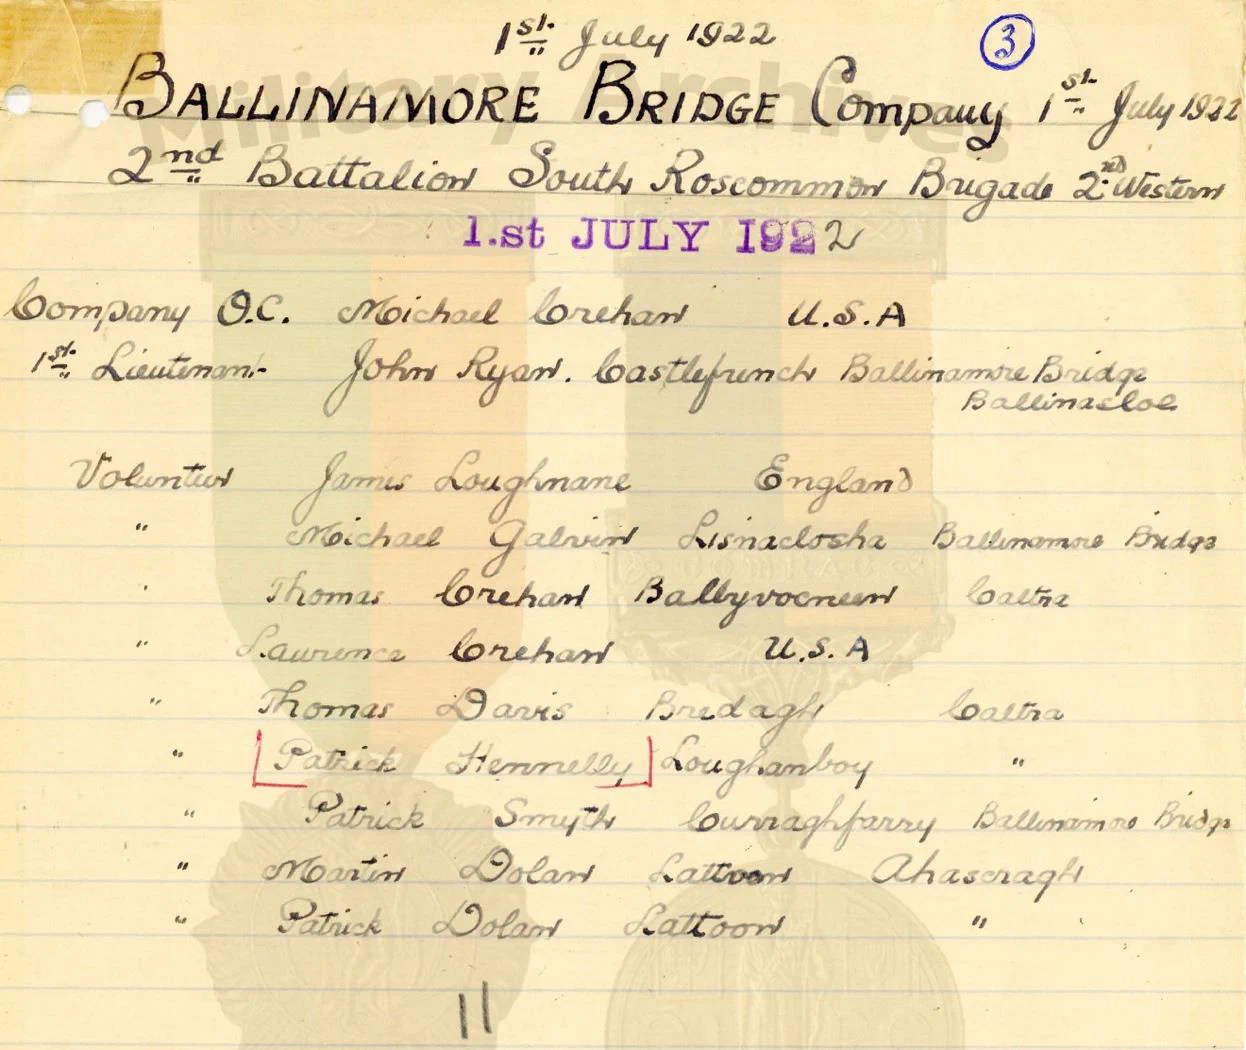 1st. July 1922
3
BALLINAMORE BRIDGE Company 1st. July 1922
2nd Battalion South Roscommon Brigade 2nd Western
1.st JULY 1922
Company O.C. Michael Crehan U.S.A
1st. Lieutenant John Ryan. Castlefrench Ballinamore Bridge
Ballinasloe
Volunteer James Loughnane England
" Michael Galvin Lisnaclosha Ballinamore Bridge
" Thomas Crehan Ballyvocneen Caltra
" Laurence Crehan U.S.A
" Thomas Davis Bredagh Caltra
" Patrick Hennelly Loughanboy "
" Patrick Smyth Curraghfarry Ballinamore Bridge
" Martin Dolan Lattoon Ahascragh
" Patrick Dolan Lattoon "
11
Military Archives